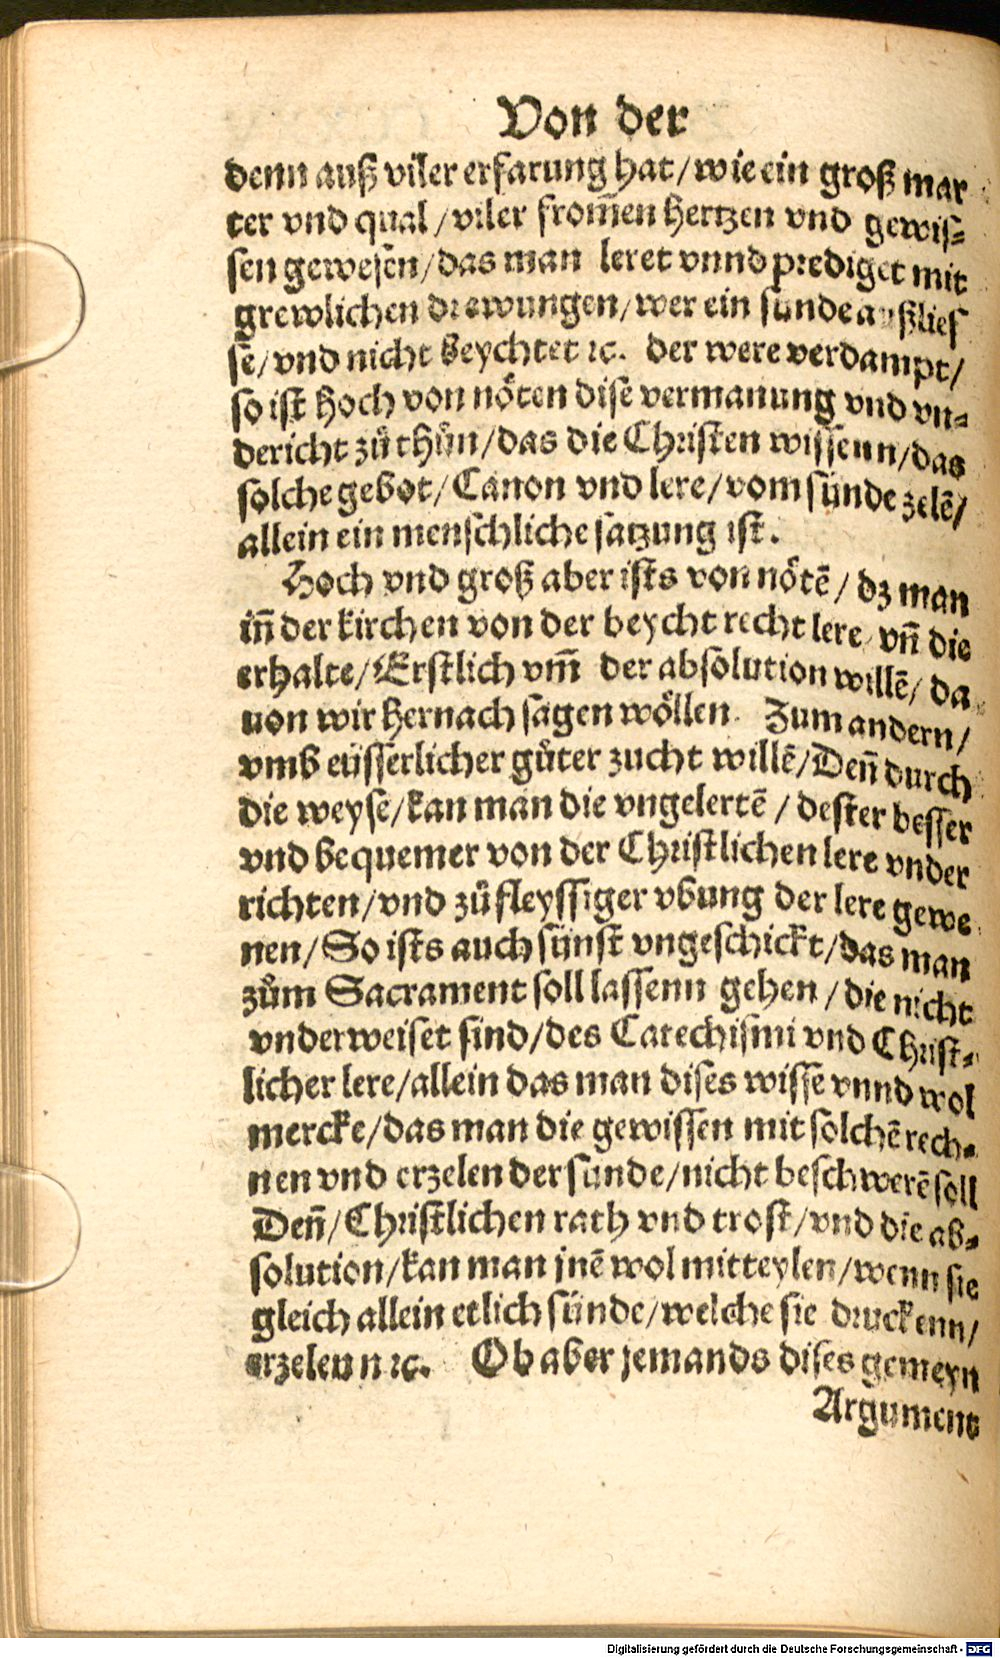 Von der
denn auß viler erfarung hat/wie ein groß mar
ter vnd qual/viler from̃en hertzen vnd gewis-
sen gewesen/das man leret vnnd prediget mit
grewlichen drewungen/wer ein sünde außlies
se/vnd nicht beychtet ꝛc. der were verdampt/
so ist hoch von nöten dise vermanung vnd vn-
dericht zů thůn/das die Christen wissenn/das
solche gebot/Canon vnd lere/vom sünde zelẽ/
allein ein menschliche satzung ist.
Hoch vnd groß aber ists von nötẽ/dz man
iñ der kirchen von der beycht recht lere/vñ die
erhalte/Erstlich vm̃ der absolution willẽ/da
uon wir hernach sagen wöllen. Zum andern/
vmb eüsserlicher gůter zucht willẽ/Deñ durch
die weyse/kan man die vngelertẽ/dester besser
vnd bequemer von der Christlichen lere vnder
richten/vnd zů fleyssiger vbung der lere gewe
nen/So ists auch sünst vngeschickt/das man
zům Sacrament soll lassenn gehen/die nicht
vnderweiset sind/des Catechismi vnd Christ-
licher lere/allein das man dises wisse vnnd wol
mercke/das man die gewissen mit solchẽ rech-
nen vnd erzelen der sünde/nicht beschwerẽ soll
Deñ/Christlichen rath vnd trost/vnd die ab-
solution/kan man jnẽ wol mitteylen/wenn sie
gleich allein etlich sünde/welche sie druckenn/
erzelenn ꝛc. Ob aber jemands dises gemeyn
Argument
Digitalisierung gefördert durch die Deutsche Forschungsgemeinschaft - DFG